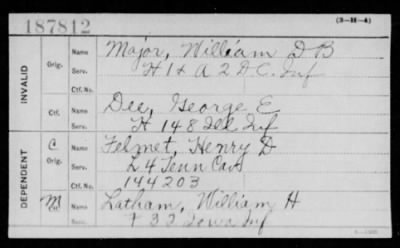 187812
(3-H-4)
INVALID
Orig.
Name Major, William D B
Serv. H 1 & A 2 D.C. Inf
Ctf. No.
Ctf.
Name Dee, George E
Serv. H 148 Ill Inf
DEPENDENT
C
Orig.
Name Felmet, Henry D
Serv. L 4 Tenn Cav
Ctf. No. 144203
M
Ctf.
Name Latham, William H
Serv. 33 Iowa Inf